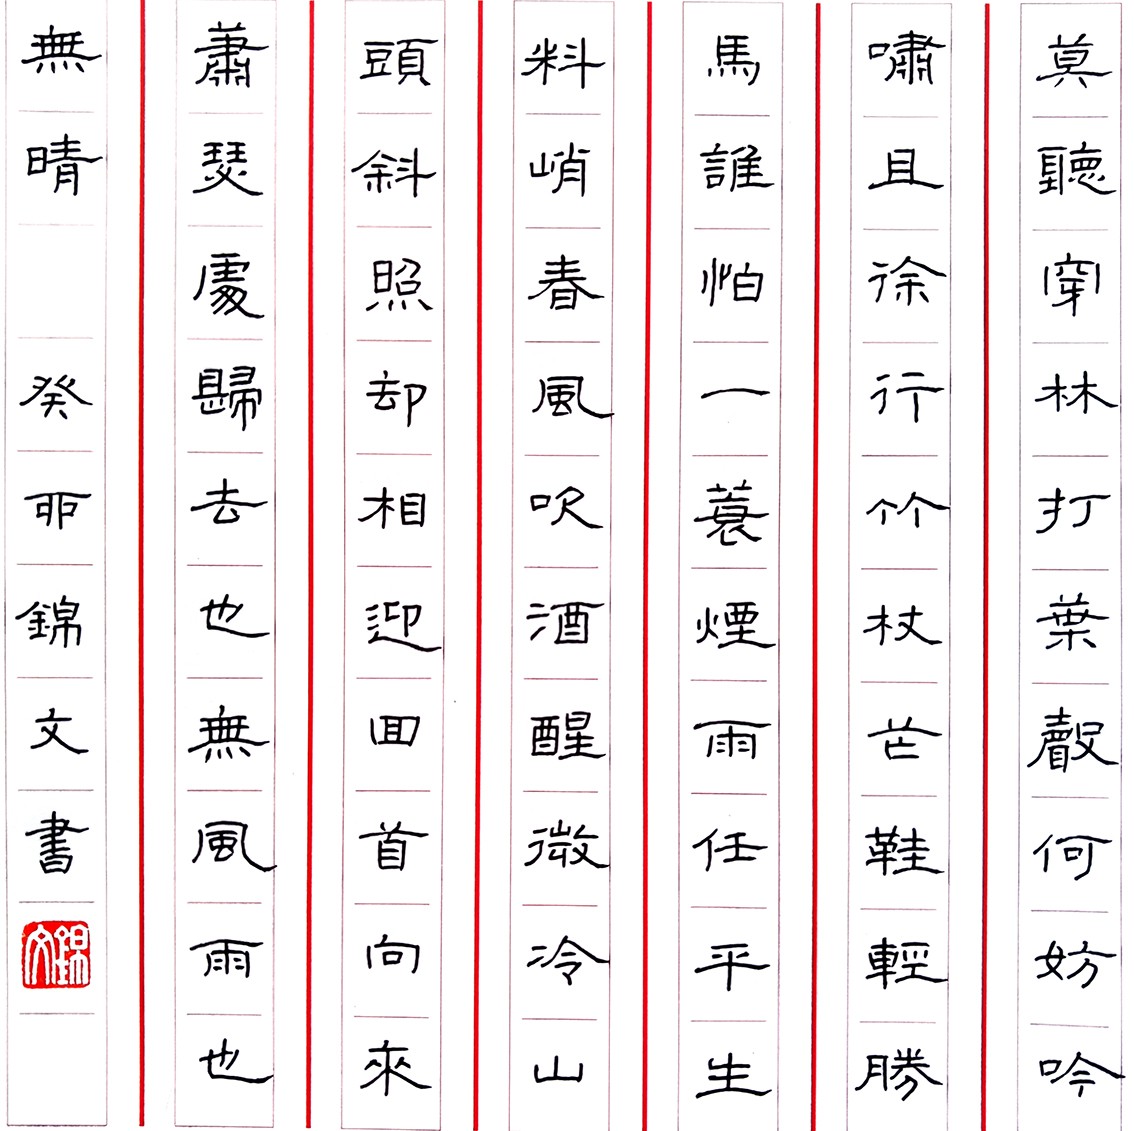 莫聽穿林打葉聲何妨吟
嘯且徐行竹杖芒鞋輕勝
馬誰怕一蓑煙雨任平生
料峭春風吹酒醒微冷山
頭斜照却相迎回首向來
蕭瑟處歸去也無風雨也
無晴 癸卯錦文書
錦文